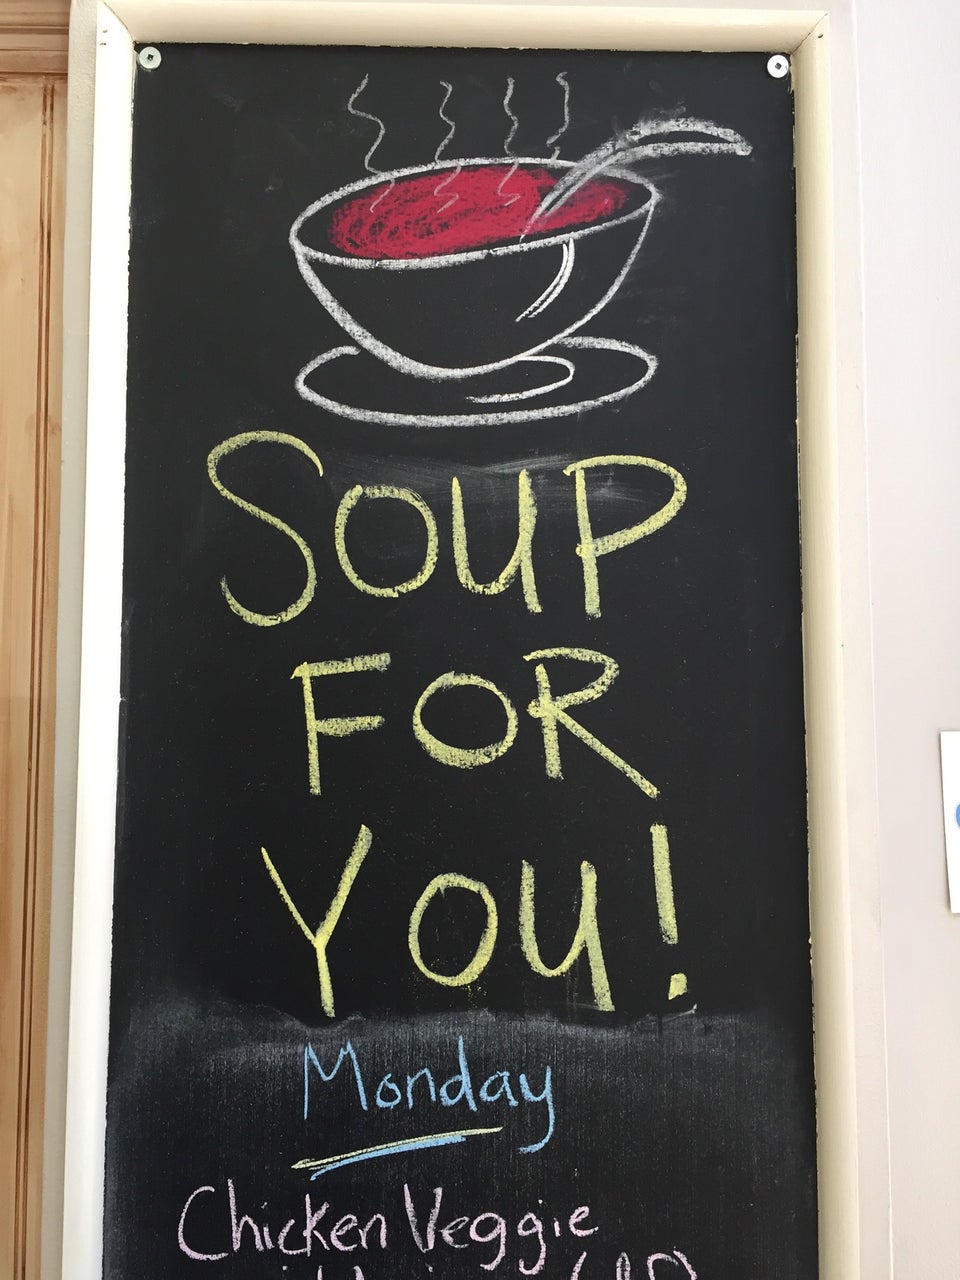 SOUP
FOR
YOU!
Monday
Chicken Veggie